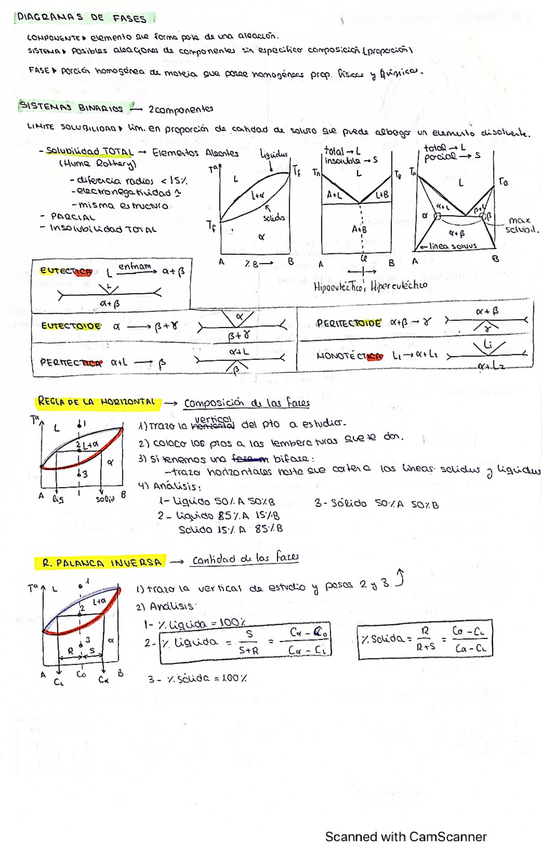 DIAGRAMAS DE FASES
COMPONENTE▸ elemento que forma pate de una aleación.
SISTEMA▸ Posibles aleaciones de componentes sin especificar composición (proporción)
FASE▸ porción homogénea de materia que posee homogéneas prop. físicas y químicas.
SISTEMAS BINARIOS — 2 componentes
LIMITE SOLUBILIDAD▸ lim. en proporción de cantidad de soluto que puede albergar un elemento disolvente.
- Solubilidad TOTAL → Elementos Aleantes
(Hume Rothery)
- diferencia radios <15%
- electronegatividad
- misma estructura
- PARCIAL
- INSOLUBILIDAD TOTAL
Tª líquidus L L+α solidus α Tf Tf A %B → B
total → L
insoluble → S
L A+L L+B A+B A B
Hipoeutéctico Hipereutéctico
total → L
parcial → S
L α α+L β+L β α+β A B
max solubil.
línea solvus
EUTÉCTICA L enfriam → α+β
L
α+β
EUTECTOIDE α → β+γ
α
β+γ
PERITECTOIDE α+β → γ
α+β
γ
PERITÉCTICA α+L → β
α+L
β
MONOTÉCTICA L₁ → α+L₂
L₁
α+L₂
REGLA DE LA HORIZONTAL → Composición de las fases
Tª L 1 2 L+α 3 α A liq solid B
1) trazo la vertical del pto a estudiar.
2) coloco los ptos a las temperaturas que te dan.
3) Si tenemos una bifase:
- trazo horizontales hasta que corten a las líneas solidus y liquidus
4) Análisis:
1- Líquido 50%A 50%B
3- Sólido 50%A 50%B
2- Líquido 85%A 15%B
Solido 15%A 85%B
R. PALANCA INVERSA → Cantidad de las fases
Tª L 1 L+α 2 3 α R S A CL C0 Cα B
1) trazo la vertical de estudio y pasos 2 y 3
2) Análisis:
1- % Líquida = 100%
2- % Líquida = S / S+R = Cα - C0 / Cα - CL
% Solida = R / R+S = C0 - CL / Cα - CL
3- % Sólida = 100%
Scanned with CamScanner